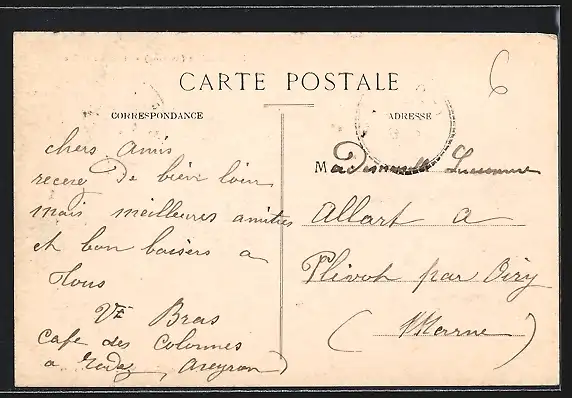 CARTE POSTALE
CORRESPONDANCE
ADRESSE
6
chers amis
recevez De bien loin
mais meilleures amities
et bon baisers a
tous
Vve Bras
Cafe des Colonnes
a Rodez, Aveyron)
Mademoiselle Suzanne
Allart a
Plivot par Oiry
(Marne)